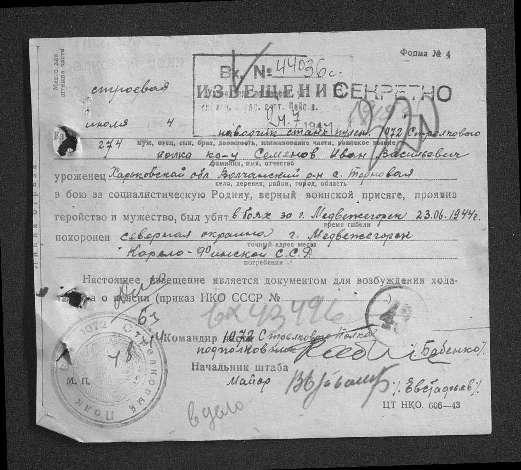 Форма № 4
Вх. № 44036с.
строевая
ИЗВЕЩЕНИЕ СЕКРЕТНО
июля 4
наводчик стан. пулем. 1072 Стрелкового
274
муж, отец, сын, брат, должность, наименование части, воинское звание
полка к-ц Семенов Иван Васильевич
фамилия, имя, отчество
уроженец Харьковской обл Волчанский р-н с. Терновая
село, деревня, район, город, область
в бою за социалистическую Родину, верный воинской присяге, проявив
геройство и мужество, был убит в боях за г. Медвежегорск 23.06.1944г.
время гибели
похоронен северная окраина г. Медвежегорск
точный адрес места
Карело-Финской С.С.Р
погребения
Настоящее извещение является документом для возбуждения хода-
о пенсии (приказ НКО СССР №
Командир 1072 Стрелкового Полка
подполковник /Бабенко/
Начальник штаба
М. П. Майор /Евстафьев/
в дело
ЦТ НКО. 606—43